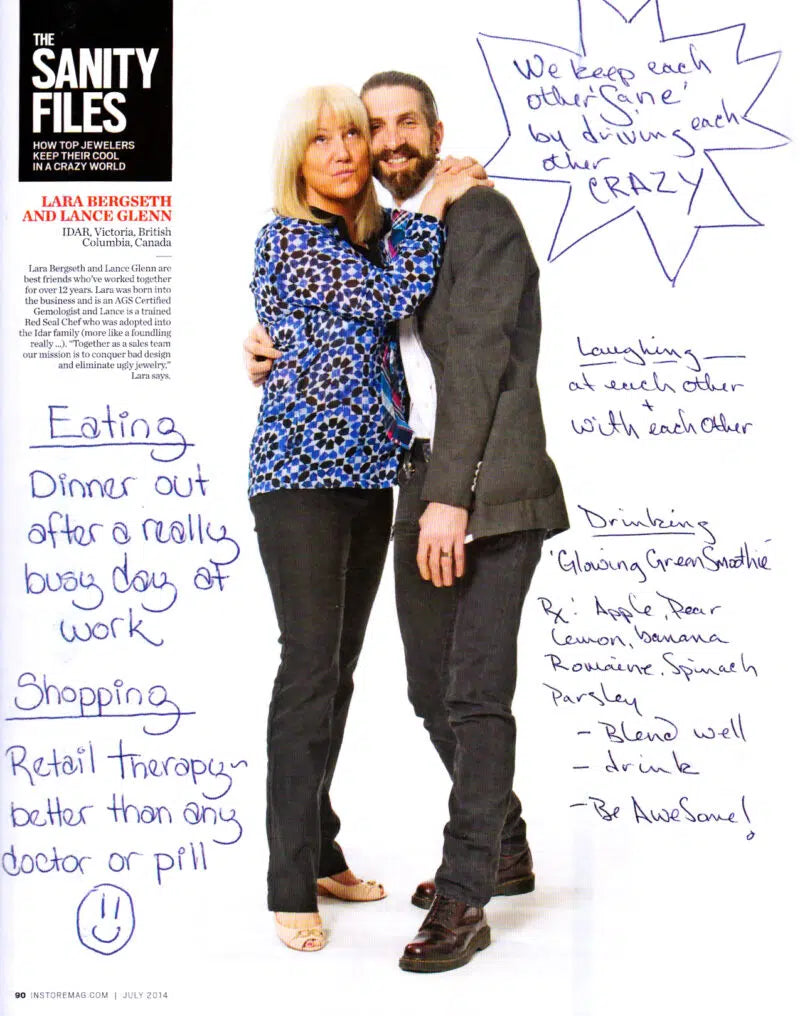 THE
SANITY
FILES
HOW TOP JEWELERS
KEEP THEIR COOL
IN A CRAZY WORLD
LARA BERGSETH
AND LANCE GLENN
IDAR, Victoria, British
Columbia, Canada
Lara Bergseth and Lance Glenn are
best friends who've worked together
for over 12 years. Lara was born into
the business and is an AGS Certified
Gemologist and Lance is a trained
Red Seal Chef who was adopted into
the Idar family (more like a foundling
really ...). "Together as a sales team
our mission is to conquer bad design
and eliminate ugly jewelry,"
Lara says.
Eating
Dinner out
after a really
busy day at
work
Shopping
Retail therapy~
better than any
doctor or pill
We keep each
other 'Sane'
by driving each
other
CRAZY
Laughing
at each other
+
with each other
Drinking
'Glowing Green Smoothie'
Rx: Apple, Pear
Lemon, banana
Romaine, Spinach
Parsley
- Blend well
- drink
- Be Awesome!
90 INSTOREMAG.COM | JULY 2014